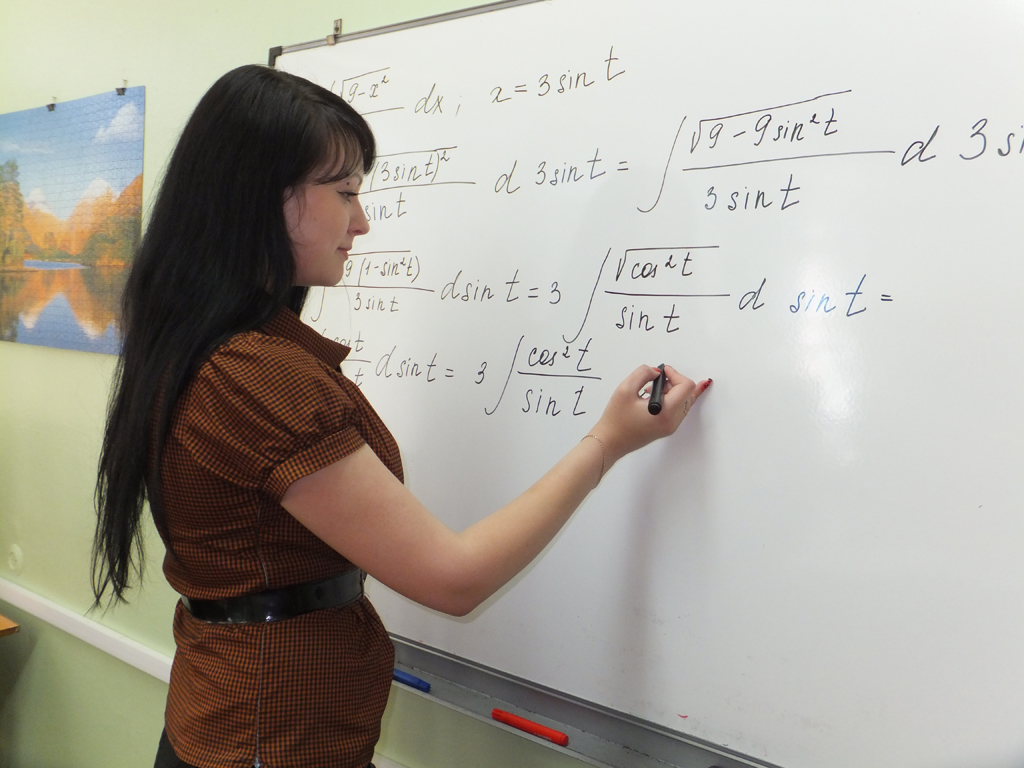 √9-x² dx; x = 3 sin t
(3 sin t)² / sin t d 3 sin t = ∫ √9 - 9 sin² t / 3 sin t d 3 si
9 (1 - sin² t) / 3 sin t d sin t = 3 ∫ √cos² t / sin t d sin t =
cos t / t d sin t = 3 ∫ cos² t / sin t